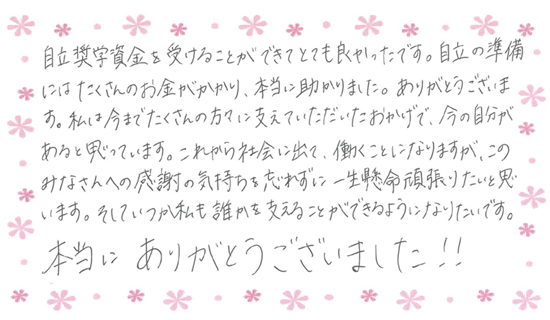 自立奨学資金を受けることができてとても良かったです。自立の準備
にはたくさんのお金がかかり、本当に助かりました。ありがとうございま
す。私は今までたくさんの方々に支えていただいたおかげで、今の自分が
あると思っています。これから社会に出て、働くことになりますが、この
みなさんへの感謝の気持ちを忘れずに一生懸命頑張りたいと思
います。そしていつか私も誰かを支えることができるようになりたいです。
本当に ありがとうございました!!